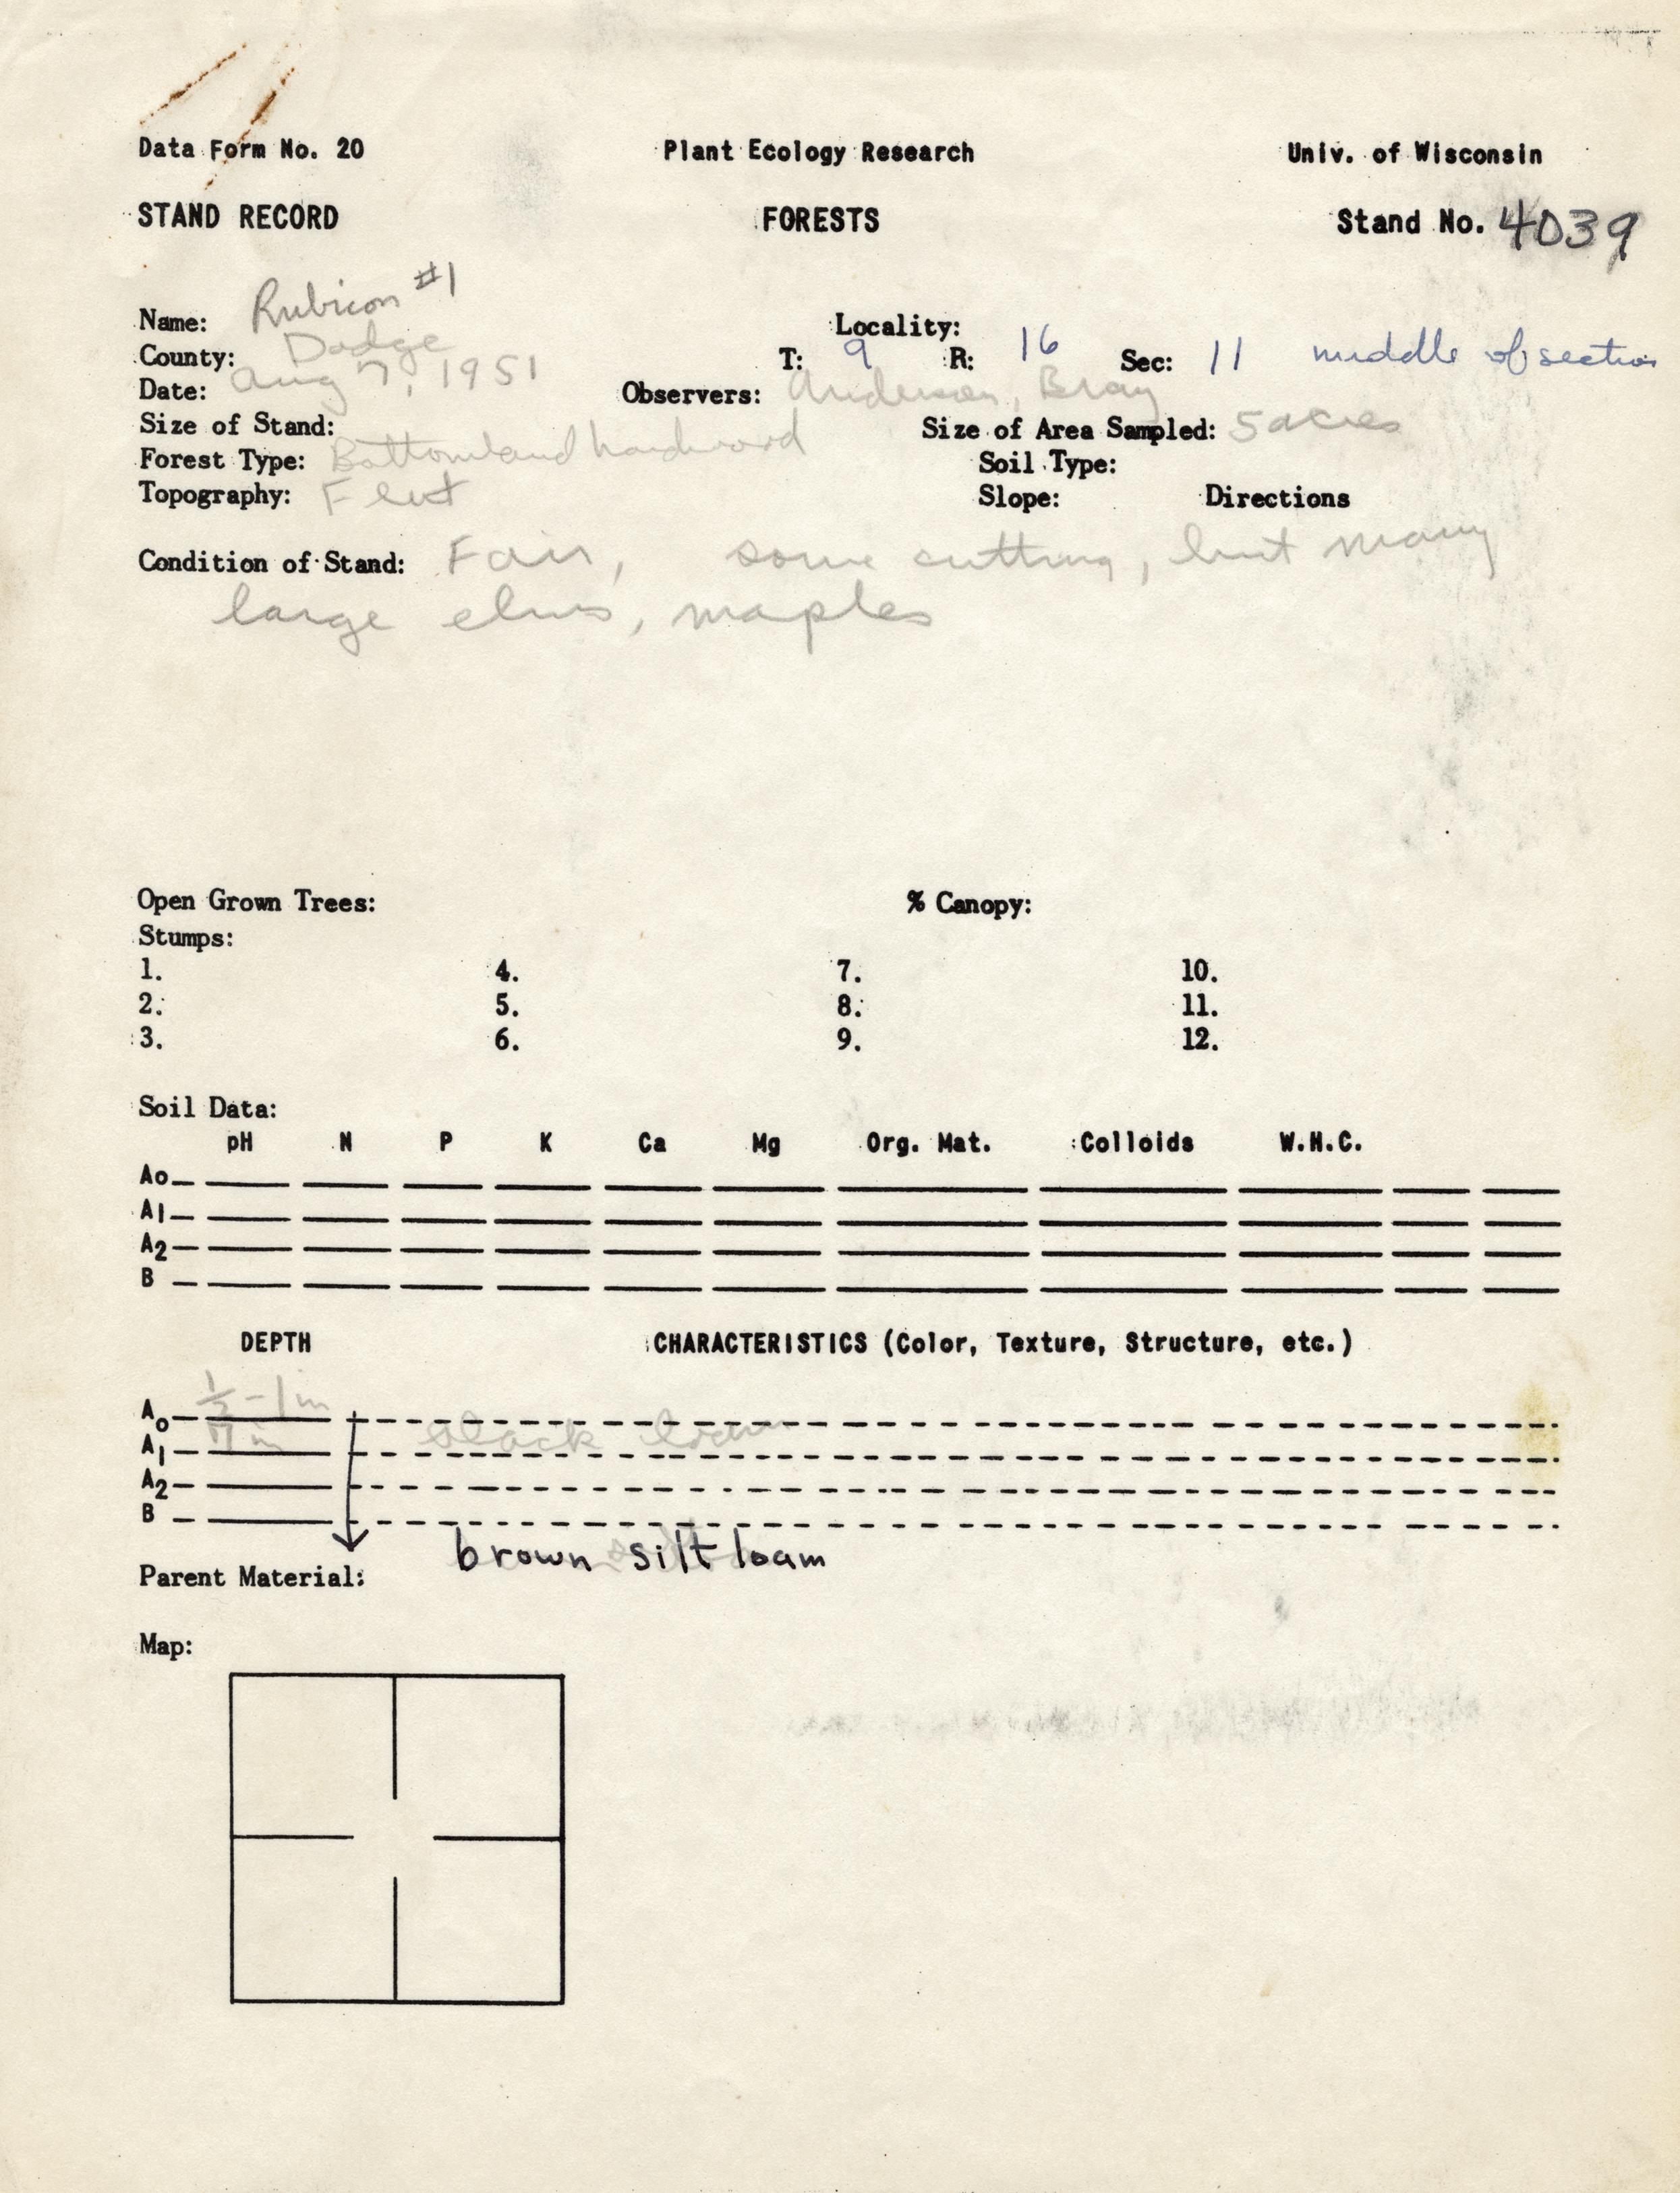 Data Form No. 20 Plant Ecology Research Univ. of Wisconsin
STAND RECORD FORESTS Stand No. 4039
Name: Rubicon #1 Locality:
County: Dodge T: 9 R: 16 Sec: 11 middle of section
Date: Aug 7, 1951 Observers: Anderson, Bray
Size of Stand: Size of Area Sampled: 5 acres
Forest Type: Bottomland hardwood Soil Type:
Topography: Flat Slope: Directions
Condition of Stand: Fair, some cutting, but many
large elms, maples
Open Grown Trees: % Canopy:
Stumps:
1. 4. 7. 10.
2. 5. 8. 11.
3. 6. 9. 12.
Soil Data:
pH N P K Ca Mg Org. Mat. Colloids W.H.C.
Ao
A1
A2
B
DEPTH CHARACTERISTICS (Color, Texture, Structure, etc.)
Ao ½-1 in
A1 7 in black loam
A2
B
brown silt loam
Parent Material:
Map: